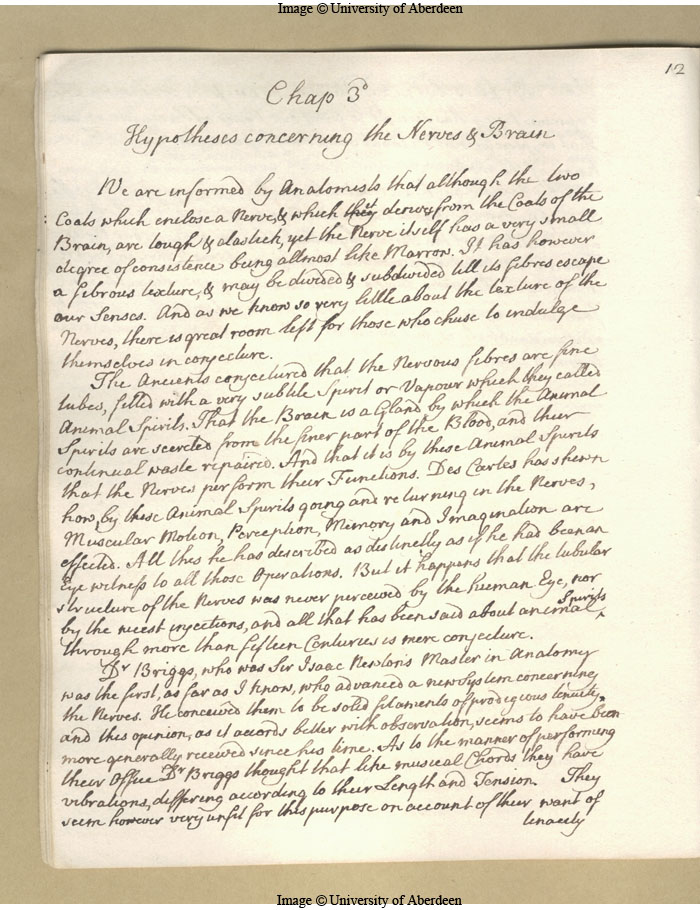 Image © University of Aberdeen
12
Chap 3d
Hypotheses concerning the Nerves & Brain
We are informed by Anatomists that although the two
Coats which enclose a Nerve, & which they it derives from the Coats of the
Brain, are tough & elastick, yet the Nerve itself has a very small
degree of consistence being allmost like Marrow. It has however
a fibrous texture, & may be divided & subdivided till its fibres escape
our Senses. And as we know so very little about the texture of the
Nerves, there is great room left for those who chuse to indulge
themselves in conjecture.
The Ancients conjectured that the Nervous fibres are fine
tubes, filled with a very subtile Spirit or Vapour which they called
Animal Spirits. That the Brain is a Gland by which the Animal
Spirits are secreted from the finer part of the Blood, and their
continual waste repaired. And that it is by these Animal Spirits
that the Nerves perform their Functions. Des Cartes has shewn
how, by these Animal Spirits going and returning in the Nerves,
Muscular Motion, Perception, Memory and Imagination are
effected. All this he has described as distinctly as if he had been an
Eye witness to all those Operations. But it happens that the tubular
structure of the Nerves was never perceived by the human Eye, nor
by the nicest injections, and all that has been said about animal Spirits
through more than fifteen Centuries is mere conjecture.
Dr Briggs, who was Sir Isaac Newton's Master in Anatomy
was the first, as far as I know, who advanced a new System concerning
the Nerves. He conceived them to be solid filaments of prodigious tenuity,
and this opinion, as it accords better with observation, seems to have been
more generally received since his time. As to the manner of performing
their Office Dr Briggs thought that like musical Chords they have
vibrations, differing according to their Length and Tension. They
seem however very unfit for this purpose on account of their want of
tenacity
Image © University of Aberdeen